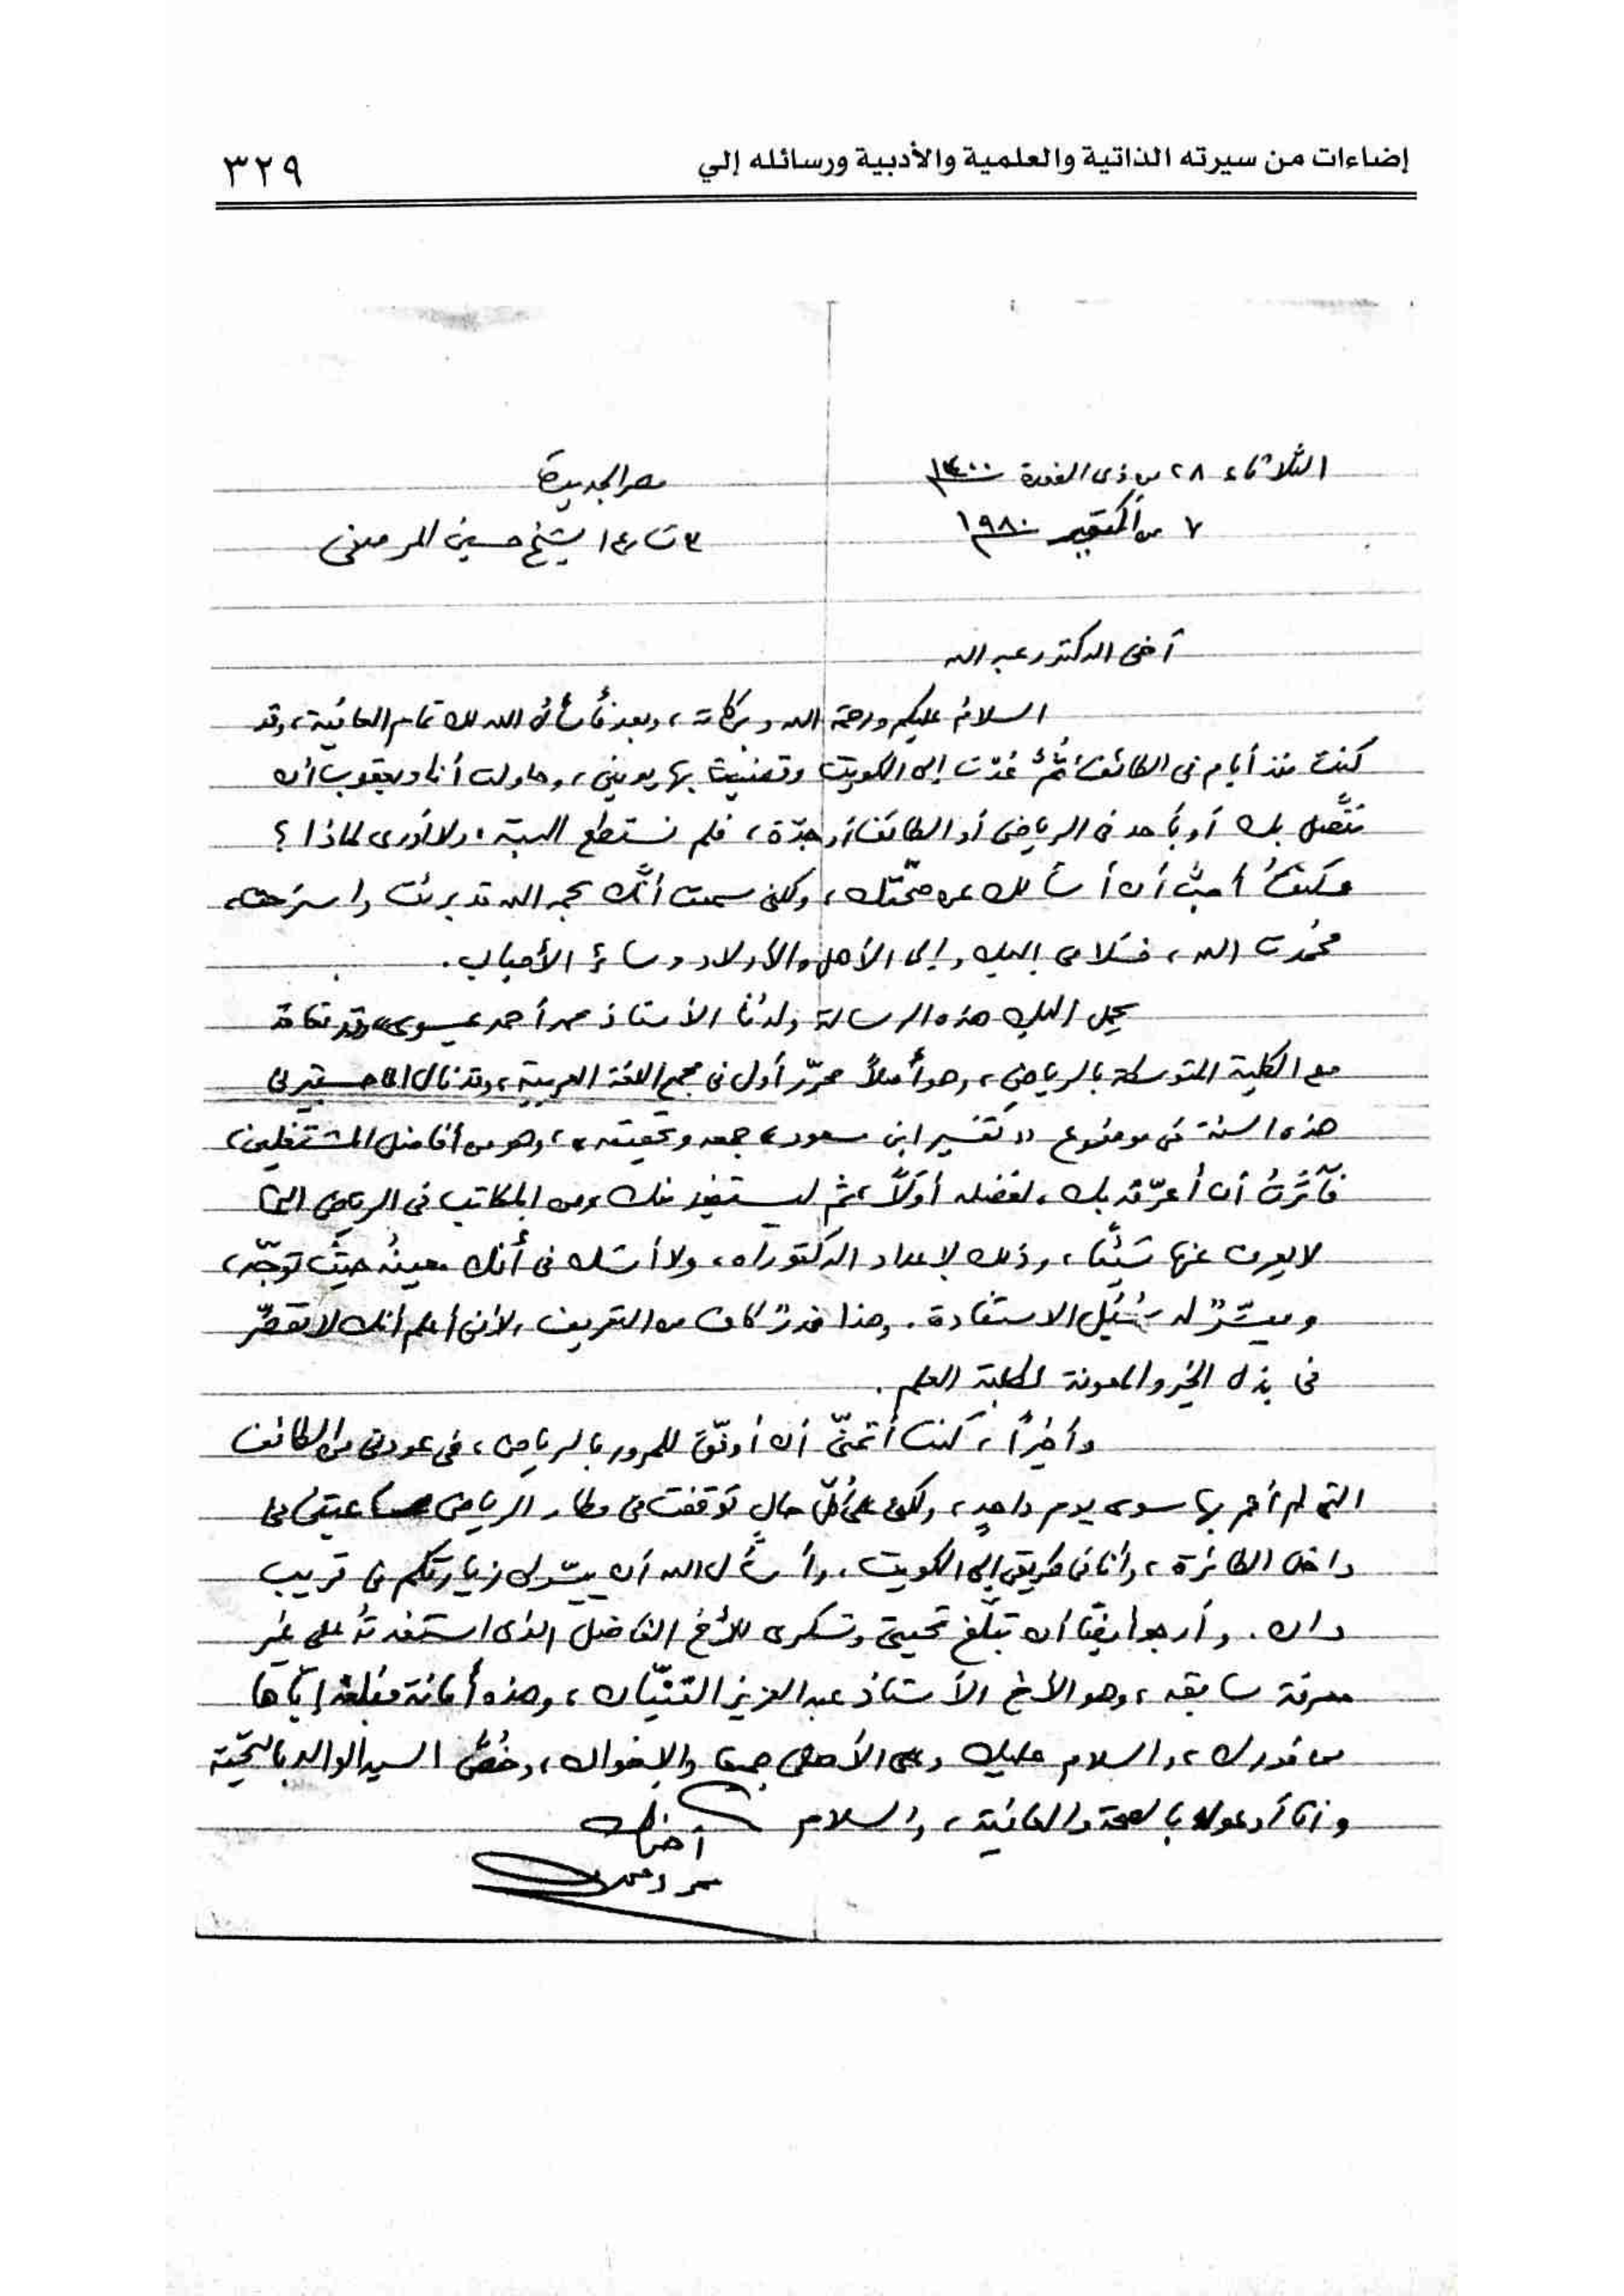 إضاءات من سيرته الذاتية والعلمية والأدبية ورسائله إلي
٣٢٩
الثلاثاء ٢٨ من ذى القعدة ١٤٠٠
مصر الجديدة
٧ من أكتوبر ١٩٨٠
٣ شارع الشيخ حسين المرصفى
أخى الدكتور عبد الله
السلام عليكم ورحمة الله وبركاته، وبعد فأسأل الله لك تمام العافية، وقد
كنت منذ أيام فى الطائف ثُمَّ عُدْت إلى الكويت وقضيت بها يومين، وحاولت أنا ويعقوب أن
نتَّصل بك أو بأحد فى الرياض أو الطائف أو جدّة، فلم نستطع البتة، ولا أدرى لماذا؟
وكنتُ أحبُّ أن أسألك عن صحّتك، ولكنى سمعت أنَّك بحمد الله قد برئت واسترحت،
فحمدت الله، فسلامى إليك وإلى الأهل والأولاد وسائر الأحباب.
يحمل إليك هذه الرسالة ولدُنا الأستاذ محمد أحمد عيسوى، وقد تعاقد
مع الكلية المتوسطة بالرياض، وهو أصلاً محرّر أول فى مجمع اللغة العربية، وقد نال الماجستير فى
هذه السنة فى موضوع «تفسير ابن مسعود، جمعه وتحقيقه»، وهو من أفاضل المشتغلين،
فآثرتُ أن أعرّفه بك، لفضله أوّلاً، ثم ليستفيد منك ومن المكاتب فى الرياض التى
لا يعرف عنها شيئًا، وذلك لإعداد الدكتوراه، ولا أشك فى أنك معينُه حيثُ توجّه،
وميسّرٌ له سُبُل الاستفادة. وهذا قدرٌ كاف من التعريف، لأننى أعلم أنك لا تقصّر
فى بذل الخير والمعونة لطلبة العلم.
وأخيرًا، كنت أتمنّى أن أوفّق للمرور بالرياض، فى عودتى من الطائف
التى لم أنعم بها سوى يوم واحدٍ، ولكنى على كلّ حالٍ توقفت فى مطار الرياض ساعتين فى
داخل الطائرة، وأنا فى طريقى إلى الكويت، وأسأل الله أن ييسّر لى زيارتكم فى قريب
دان. وأرجو أيضًا أن تبلّغ تحيتى وشكرى للأخ الفاضل الذى استفدتهُ على غير
معرفة سابقه، وهو الأخ الأستاذ عبد العزيز التنيّان، وهذه أمانة فبلغه إيّاها
من فورك، والسلام عليك وعلى الأهل جميعا والإخوان، وخُصَّ السيد الوالد بالتحيّة
وأنا أدعو له بالصحة والعافية، والسلام
أخوك
محمود محمد شاكر